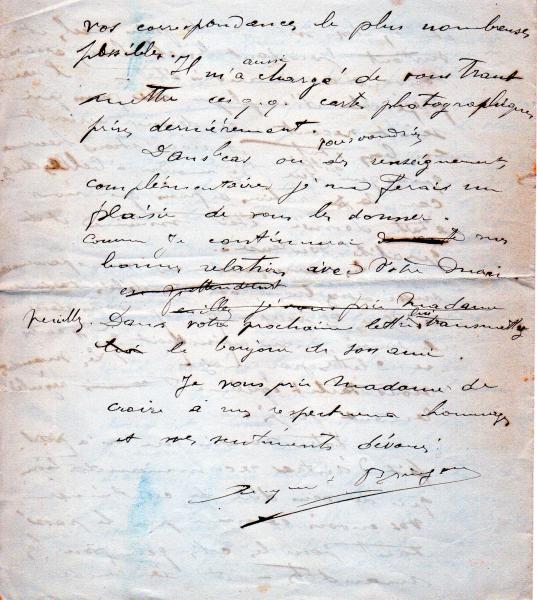 vos correspondances le plus nombreuses
possibles.
aussi
Il m'a chargé de vous trans
mettre ces q.q. cartes photographiques
prises dernièrement.
vous voudriez
Dans le cas ou des renseignements
complémentaires je me ferais un
plaisir de vous les donner.
Comme je continuerai mes
bonnes relations avec Votre mari
en attendant
veuillez je vous prie Madame
veuillez. Dans votre prochaine lettre lui transmettre
le bonjour de son ami.
Je vous prie Madame de
croire à mes respectueux hommages
et mes sentiments dévoués